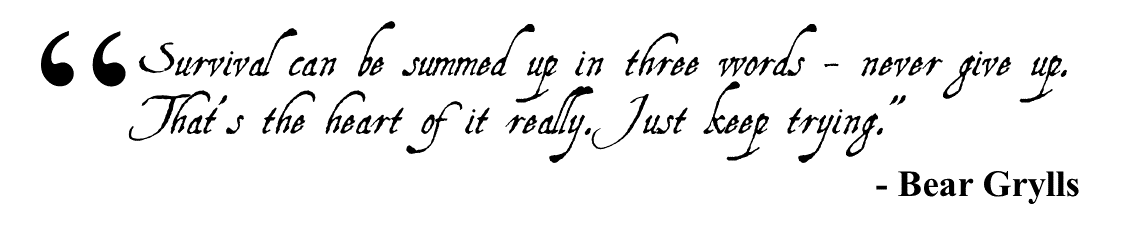 “Survival can be summed up in three words - never give up.
That's the heart of it really. Just keep trying."
- Bear Grylls